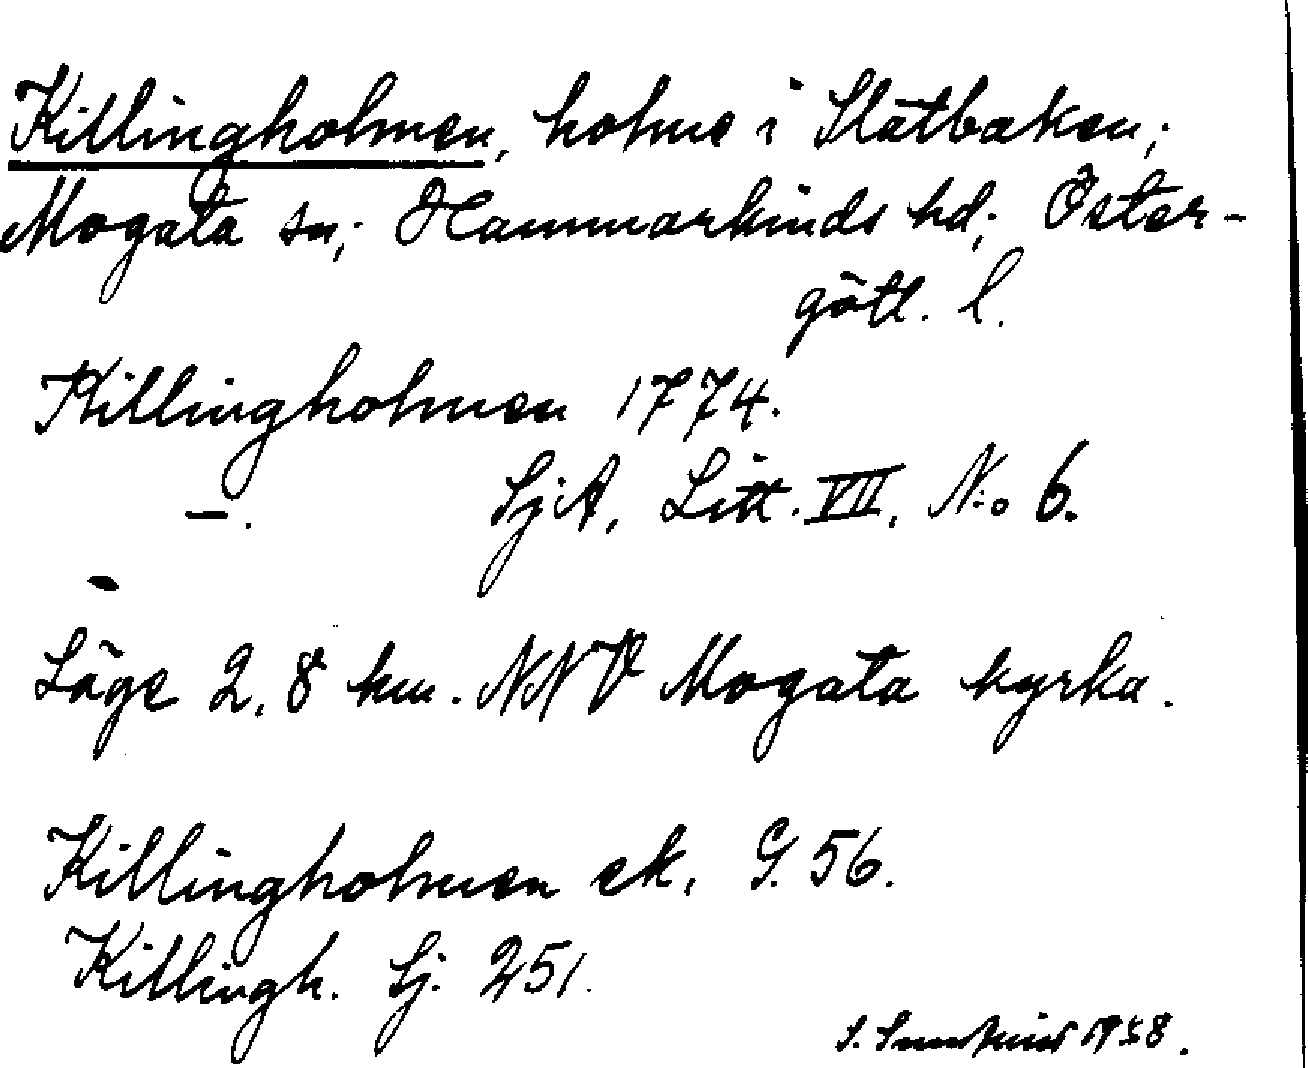 Killingholmen, holme i Slätbaken;
Mogata sn; Hammarkinds hd; Öster-
götl. l.
Killingholmen 1774.
–. SjA, Litt. VII, N:o 6.
Läge 2,8 km. NNV Mogata kyrka.
Killingholmen ek. G. 56.
Killingh. Sj. 251.
S. 1938.